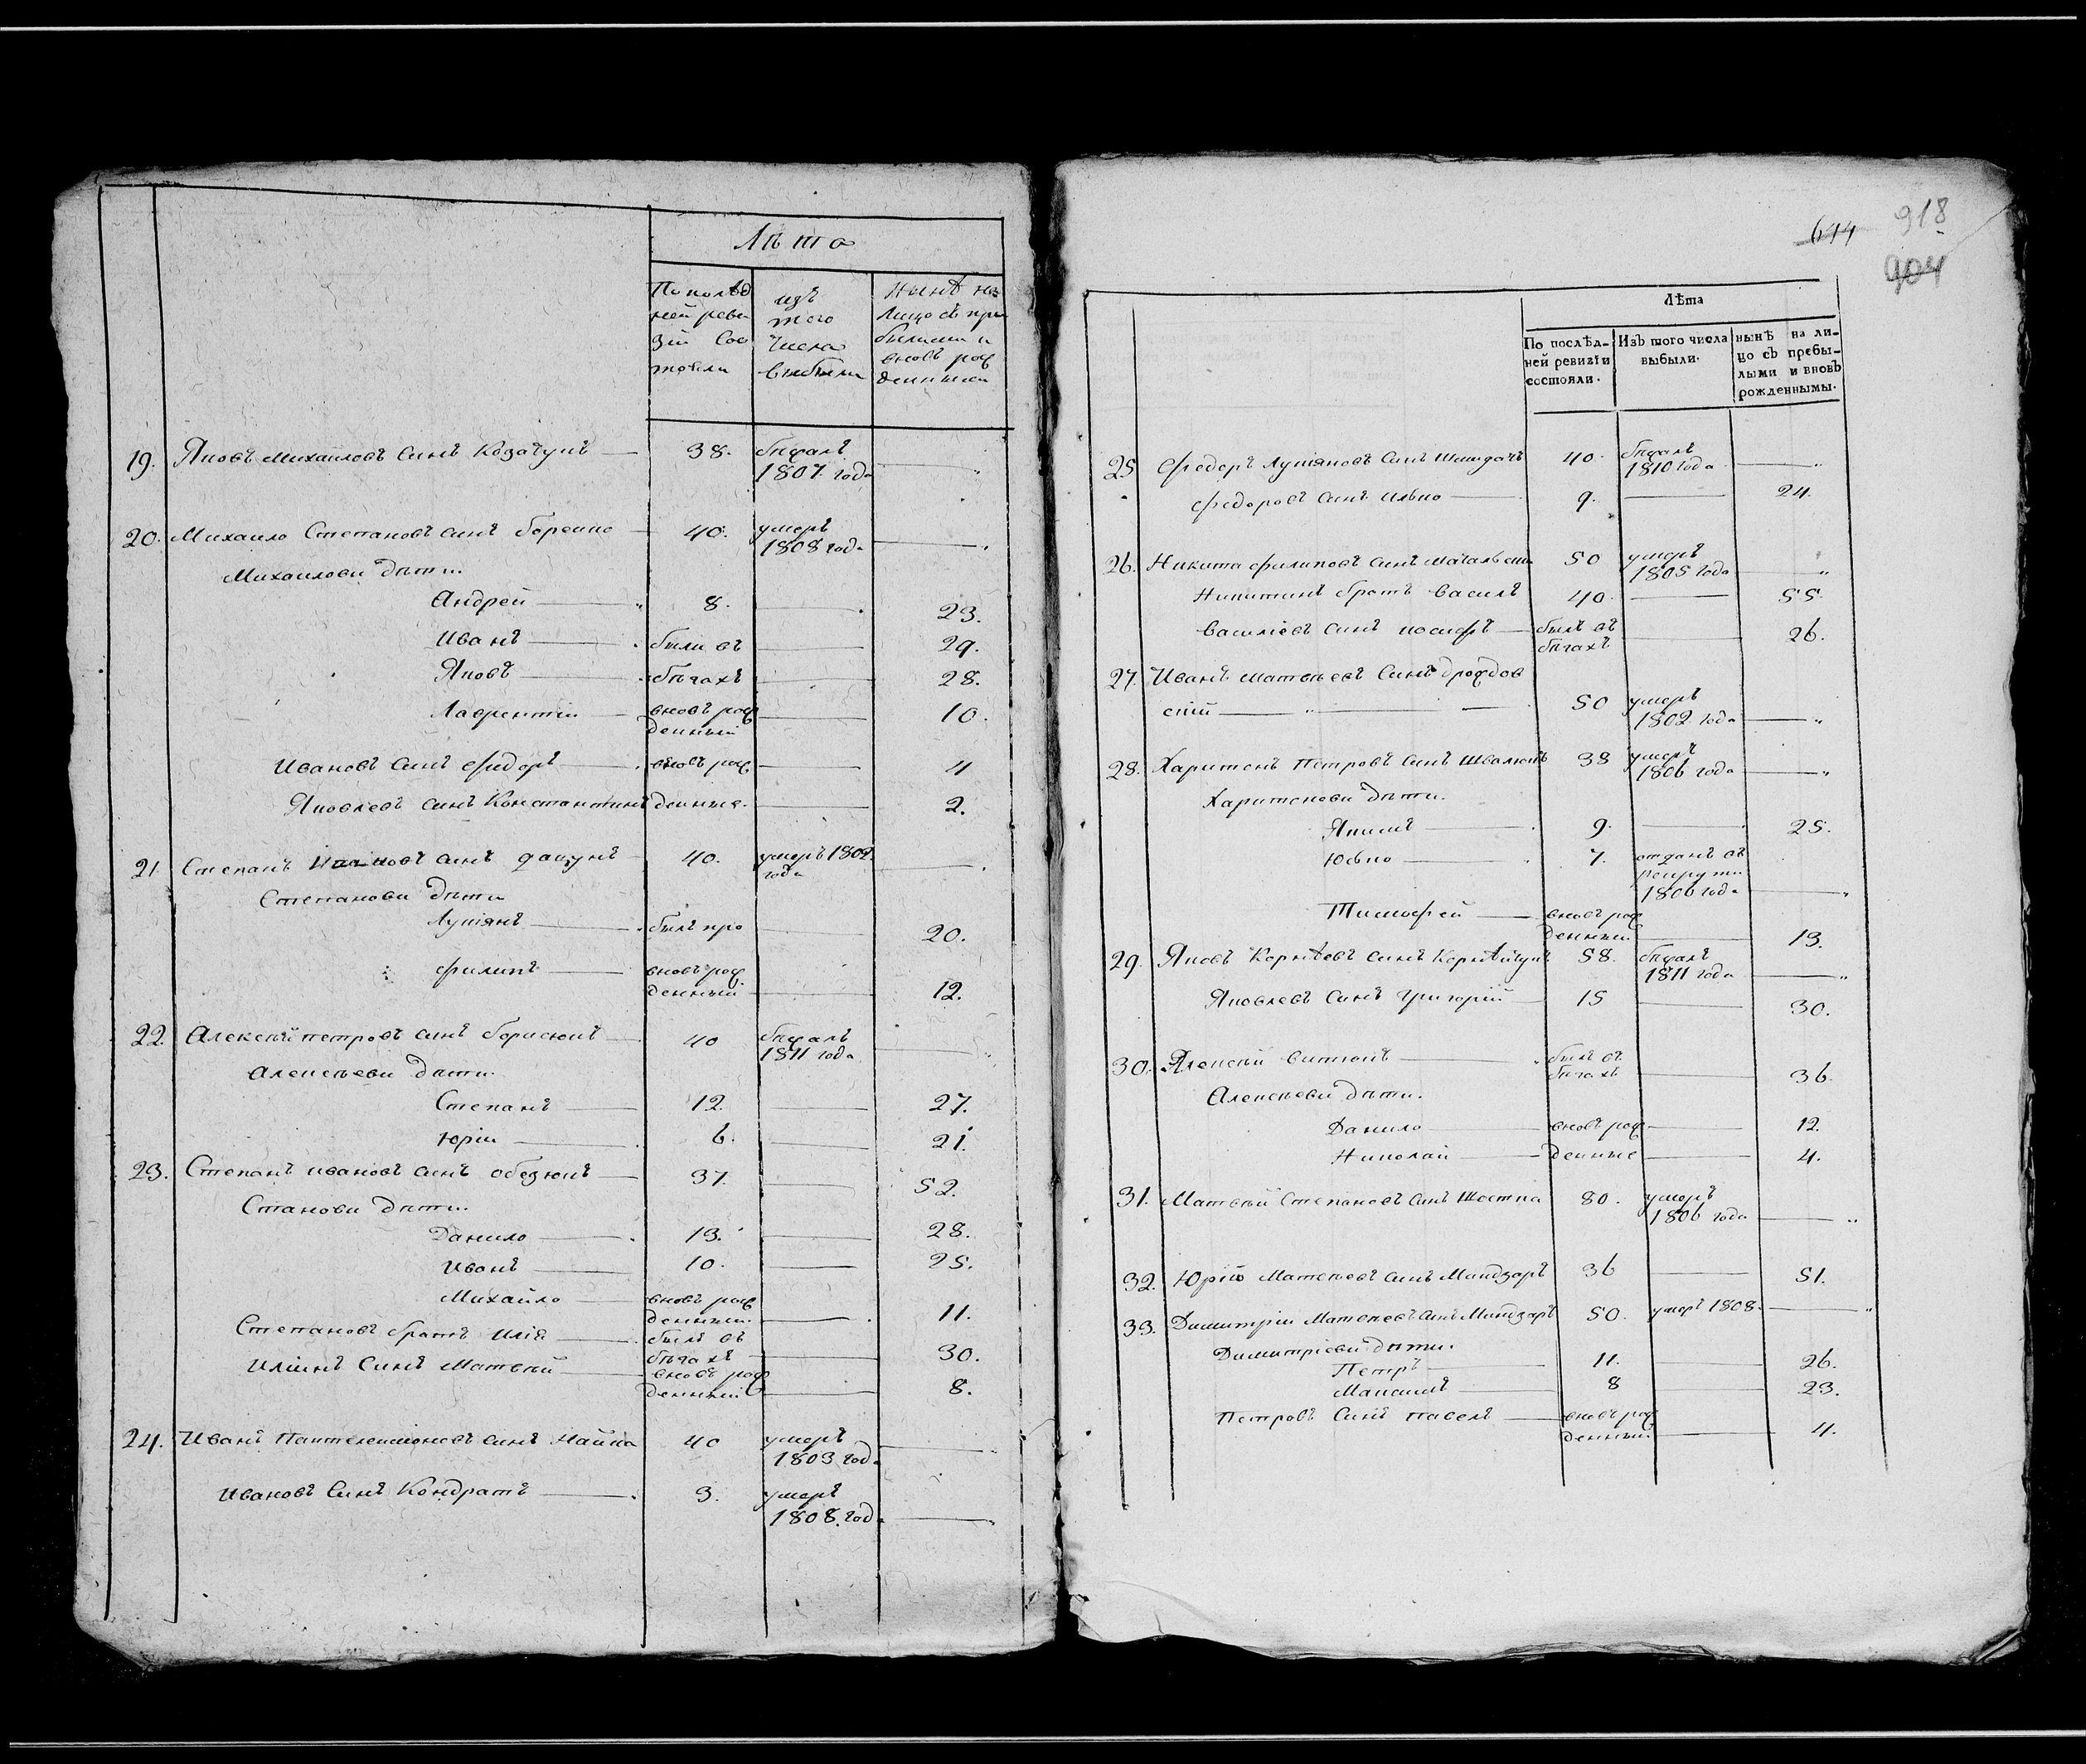 Лѣта
По послѣд
ней реви
зіи Сос
тояли
изъ
того
числа
выбыли
нынѣ на
Лицо съ при
былыми и
вновь рож
денными
19. Яковъ Михайловъ Синъ Козачукъ 38. бѣжалъ
1807. года
20. Михайло Степановъ синъ 40. умеръ
1808 года
Михайлови дѣти.
Андрей 8. 23.
Иванъ были въ 29.
Яковъ бѣгахъ 28.
Лаврентій вновь рож 10.
денный
Ивановъ Синъ Федоръ вновь рож 4
Яковлевъ синъ Константинъ денные. 2.
21 Степанъ Ивановъ синъ 40. умеръ 1802.
года
Степанови дѣти
Лукіянъ былъ про 20.
Филипъ вновь рож
денный 12.
22. Алексѣй петровъ синъ борисюкъ 40 бѣжалъ
1811 года
Алексѣеви дѣти.
Степанъ 12. 27.
Юрій 6. 21.
23. Степанъ ивановъ синъ 37. 52.
Станови дѣти.
Данило 13. 28.
Иванъ 10. 25.
Михайло вновь рож
денный. 11.
Степановъ братъ Илія былъ въ
бѣгахъ 30.
Иліинъ Синъ Матвѣй вновь рож
денный 8.
24. Иванъ Пантелеимоновъ синъ 40 умеръ
1803 года
Ивановъ Синъ Кондратъ 3. умеръ
1808. года
644 918
904
Лѣта
По послѣд-
ней ревизіи
состояли.
Изъ того числа
выбыли.
нынѣ на ли-
цо съ пребы-
лыми и вновь
рожденнымы.
25 Федоръ Лукіяновъ Синъ 40. бѣжалъ
1810 года
Федоровъ Синъ Илько 9. 24.
26. Никита Филиповъ Синъ 50 умеръ
1805 года
Никитинъ братъ Василь 40. 55.
Василіевъ Синъ иосифъ былъ въ 26.
бѣгахъ
27. Иванъ матвѣевъ Синъ дроздов
скій 50 умеръ
1802 года
28. Харитонъ Петровъ Синъ 38 умеръ
1806 года
Харитонови дѣти.
Якимъ 9. 25.
Юсько 7. отданъ въ
рекруты
1806 года
Тимофей вновь рож
денный. 13.
29. Яковъ Корнѣевъ синъ Корнѣйчукъ 58. бѣжалъ
1811 года
Яковлевъ Синъ Григорій 15 30.
30. Алексѣй былъ въ
бѣгахъ 36.
Алексѣеви дѣти.
Данило вновь рож 12.
Николай денные 4.
31. Матвѣй Степановъ Синъ 80. умеръ
1806 года
32. Юрій Матвѣевъ синъ Мандзаръ 36 51.
33. Димитрій Матвѣевъ Синъ Мандзаръ 50. умеръ 1808.
Димитріеви дѣти.
Петръ 11. 26.
Максимъ 8 23.
Петровъ Синъ павелъ вновь рож
денный. 4.